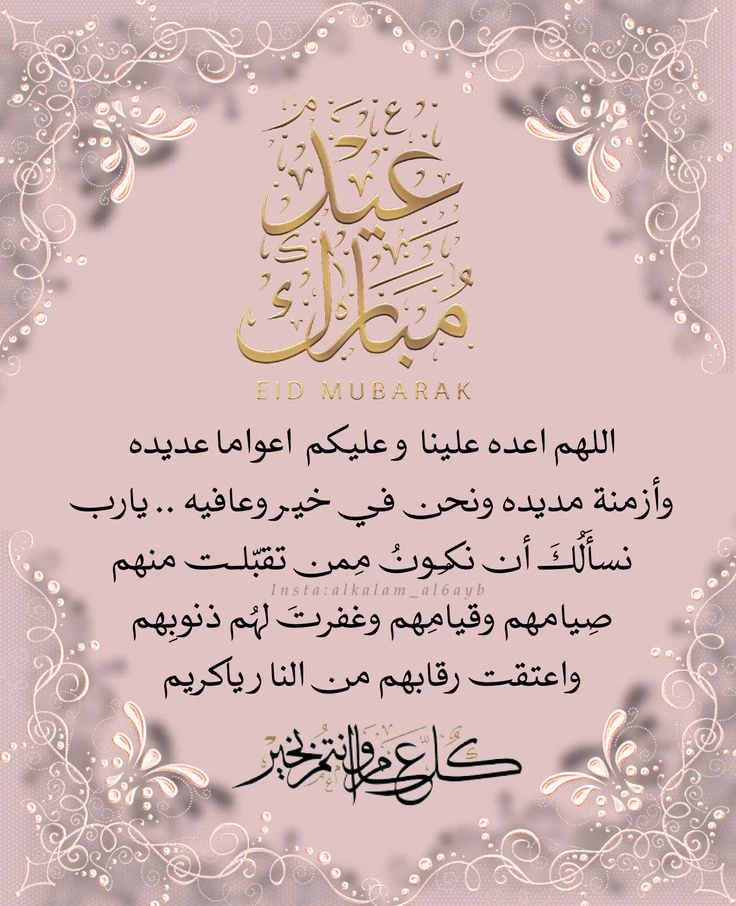 عيد
مبارك
EID MUBARAK
اللهم اعده علينا وعليكم اعواما عديده
وأزمنة مديده ونحن في خير وعافيه .. يارب
نسأَلُكَ أن نكونُ مِمن تقبّلت منهم
Insta:alkalam_al6ayb
صِيامهم وقيامِهم وغفرتَ لهُم ذنوبِهم
واعتقت رقابهم من النار ياكريم
كل عام وانتم بخير